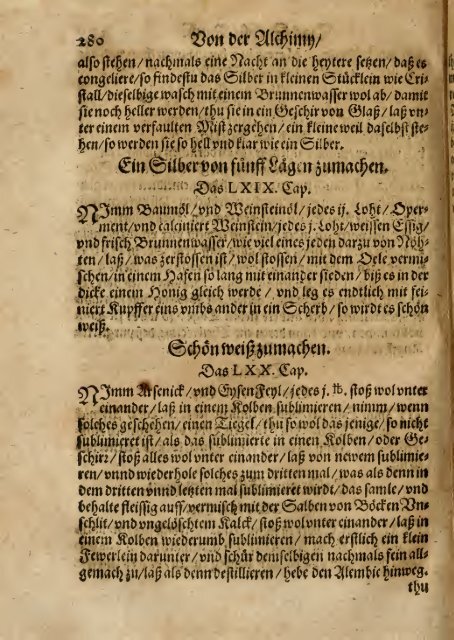 280 Von der Alchimy/
also stehen/nachmals eine Nacht an die heytere setzen/daß es
congeliere/so findestu das Silber in kleinen Stücklein wie Cri-
stall/dieselbige wasch mit einem Brunnenwasser wol ab/damit
sie noch heller werden/thu sie in ein Geschir von Glaß/laß vn-
ter einem verfaulten Mist zergehen/ein kleine weil daselbst ste-
hen/so werden sie so hell vnd klar wie ein Silber.
Ein Silber von fünff Lägen zumachen.
Das LXIX. Cap.
NImm Baumöl/vnd Weinsteinöl/jedes ij. Loht/Oper-
ment/vnd calciniert Weinstein/jedes j. Loht/weissen Essig/
vnd frisch Brunnenwasser/wie viel eines jeden darzu von Nöh-
ten/laß/was zerstossen ist/wol stossen/mit dem Oele vermi-
schen/in einem Hafen so lang mit einander sieden/biß es in der
dicke einem Honig gleich werde/vnd leg es endtlich mit fei-
niert Kupffer eins vmbs ander in ein Scherb/so wirdt es schön
weiß.
Schön weiß zumachen.
Das LXX. Cap.
NImm Arsenick/vnd Eysen Feyl/jedes j. ℔. stoß wol vnter
einander/laß in einem Kolben sublimieren/nimm/wenn
solches geschehen/einen Tiegel/thu so wol das jenige/so nicht
sublimieret ist/als das sublimierte in einen Kolben/oder Ge-
schir/stoß alles wol vnter einander/laß von newem sublimie-
ren/vnnd wiederhole solches zum dritten mal/was als denn in
dem dritten vnnd letzten mal sublimieret wirdt/das samle/vnd
behalte fleissig auff/vermisch mit der Salben von Böcken Vn-
schlit/vnd vngelöschtem Kalck/stoß wol vnter einander/laß in
einem Kolben wiederumb sublimieren/mach erstlich ein klein
Fewerlein darunter/vnd schür demselbigen nachmals fein all-
gemach zu/laß als denn destillieren/hebe den Alembic hinweg.
thu